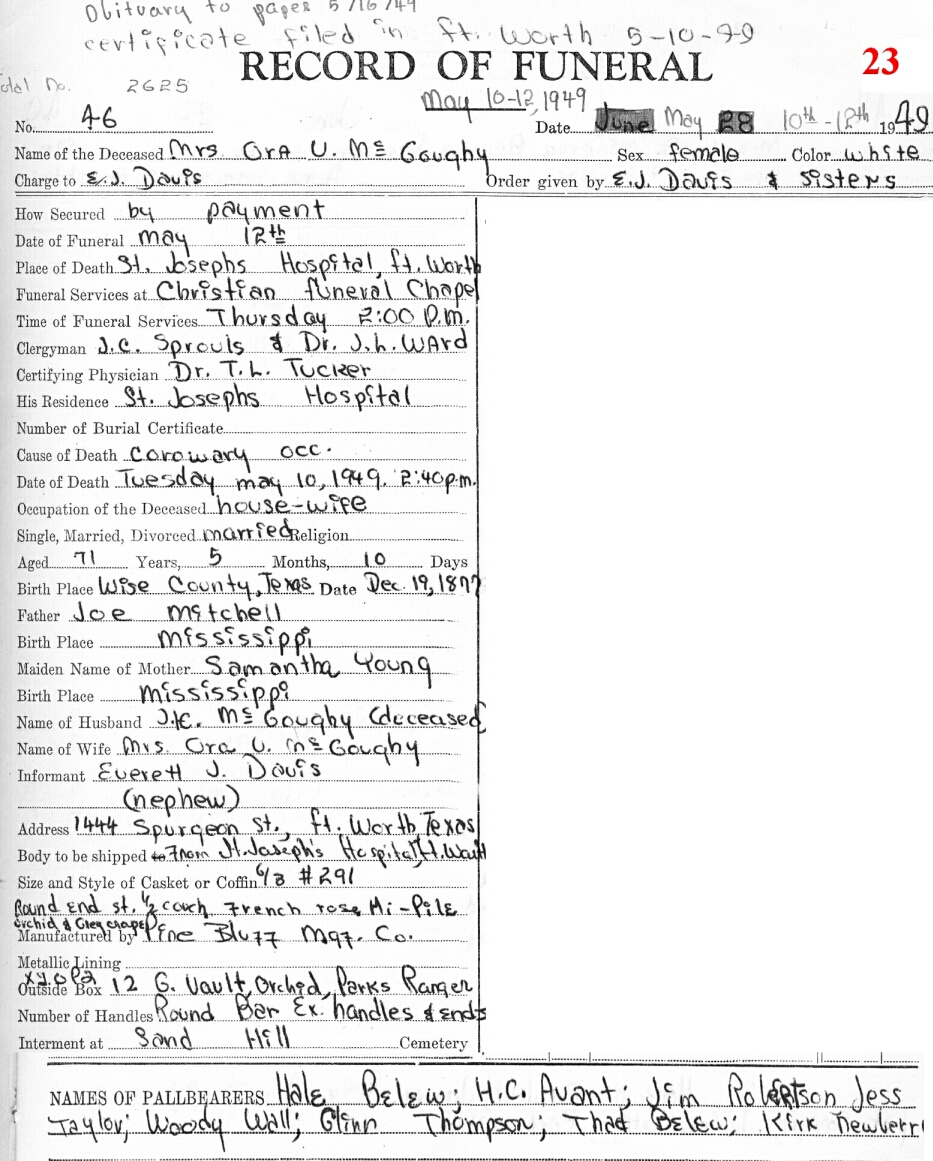 Obituary to papers 5/16/49
certificate filed in ft. Worth 5-10-49
RECORD OF FUNERAL 23
No. 2625
May 10-12, 1949
No. 46 Date June May 28 10th-12th 1949
Name of the Deceased Mrs Ora U. Mc Goughy Sex female Color white
Charge to E.J. Davis Order given by E.J. Davis & Sisters
How Secured by payment
Date of Funeral May 12th
Place of Death St. Josephs Hospital, ft. Worth
Funeral Services at Christian funeral Chapel
Time of Funeral Services Thursday 2:00 P.m.
Clergyman J.C. Sprouls & Dr. J.L. WARd
Certifying Physician Dr. T.L. Tucker
His Residence St. Josephs Hospital
Number of Burial Certificate
Cause of Death Coronary occ.
Date of Death Tuesday may 10, 1949. 2:40 p.m.
Occupation of the Deceased house-wife
Single, Married, Divorced married Religion
Aged 71 Years, 5 Months, 10 Days
Birth Place Wise County, Texas Date Dec. 19, 1877
Father Joe Mitchell
Birth Place Mississippi
Maiden Name of Mother Samantha Young
Birth Place Mississippi
Name of Husband Mc Goughy (deceased
Name of Wife Mrs. Ora U. Mc Goughy
Informant Everett J. Davis
(nephew)
Address 1444 Spurgeon St., ft. Worth Texas
Body to be shipped to From St. Joseph's Hospital, ft. Worth
Size and Style of Casket or Coffin 6/3 #291
Round End st. 1/2 couch French rose Hi-Pile
Orchid & Grey
Manufactured by Pine Bluff Mfg. Co.
Metallic Lining
Outside Box 12 G. Vault, Orchid, Parks Ranger
Number of Handles Round Bar Ex. handles & ends
Interment at Sand Hill Cemetery
NAMES OF PALLBEARERS Hale Belew; H.C. Avant; Jim Robertson Jess
Taylor; Woody Wall; Glinn Thompson; Thad Belew; Kirk Newberr